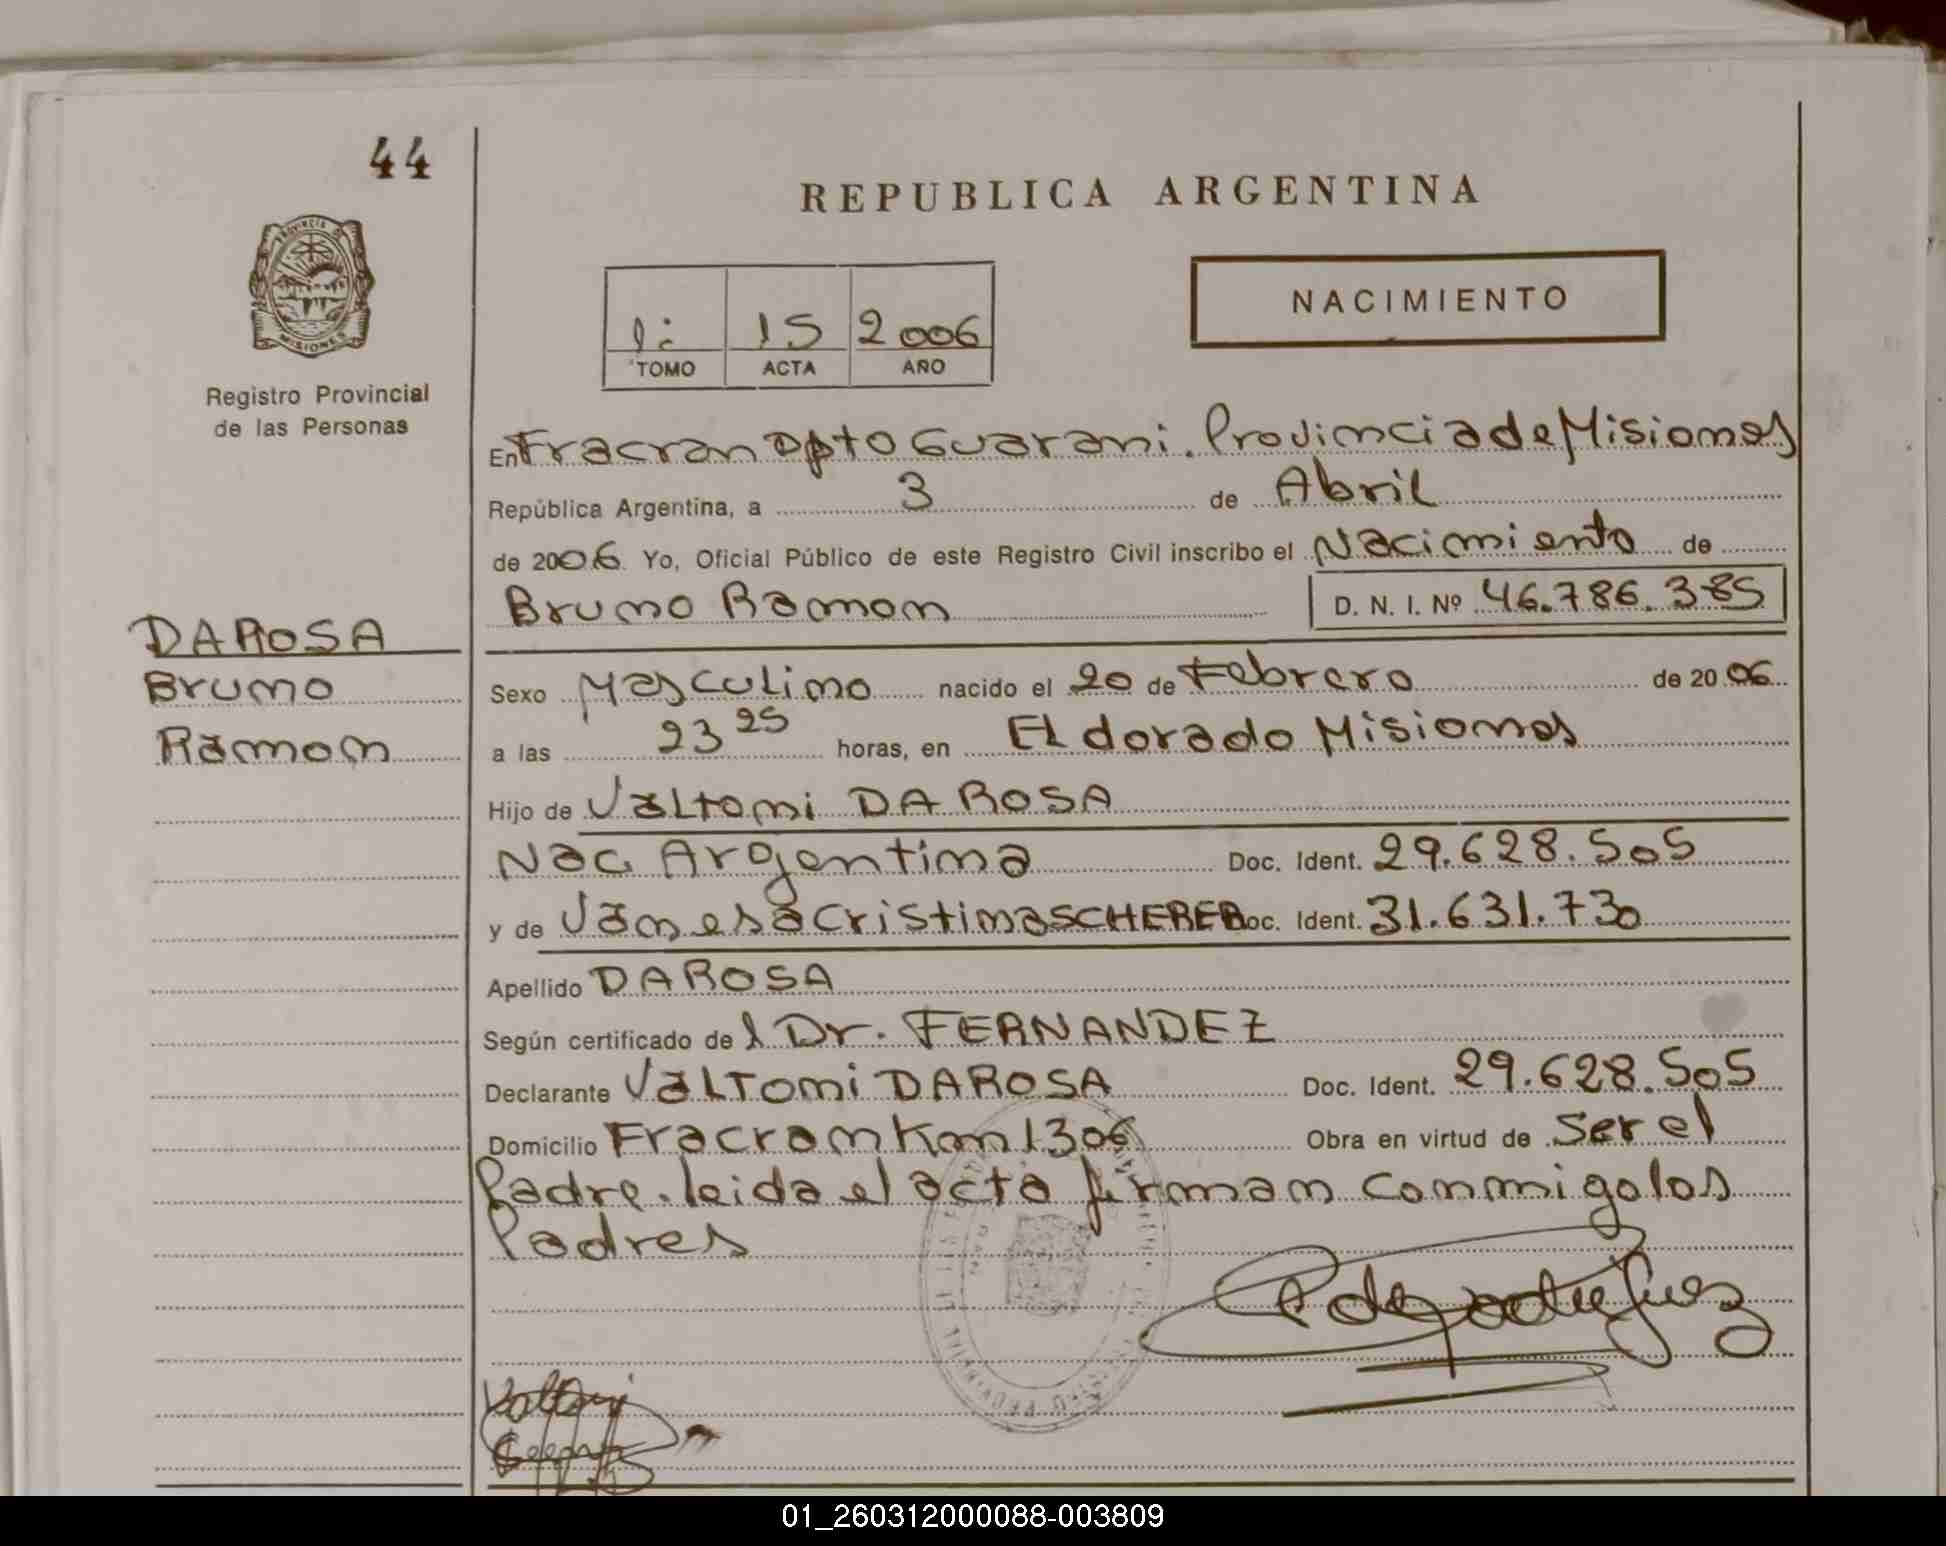 44
REPUBLICA ARGENTINA
PROVINCIA DE
MISIONES
1: 15 2006
TOMO ACTA AÑO
NACIMIENTO
Registro Provincial
de las Personas
En Fracran Dpto Guarani. Provincia de Misiones
República Argentina, a 3 de Abril
de 2006 Yo, Oficial Público de este Registro Civil inscribo el Nacimiento de
Bruno Ramon D. N. I. Nº 46.786.385
DA ROSA
Bruno
Ramon
Sexo Masculino nacido el 20 de Febrero de 2006
a las 23 25 horas, en El dorado Misiones
Hijo de Valtomi DA ROSA
Nac Argentina Doc. Ident. 29.628.505
y de Vanesa Cristina SCHERER Doc. Ident. 31.631.730
Apellido DA ROSA
Según certificado de l Dr. FERNANDEZ
Declarante Valtomi DA ROSA Doc. Ident. 29.628.505
Domicilio Fracran Km 1306 Obra en virtud de ser el
Padre. leida el acta firman conmigo los
Padres
01_260312000088-003809